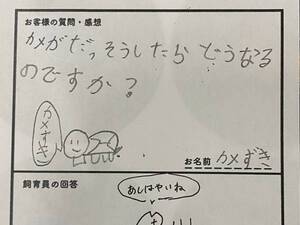 お客様の質問・感想
カメがだっそうしたらどうなる
のですか?
カメすき
お名前 カメずき
飼育員の回答
あしはやいね